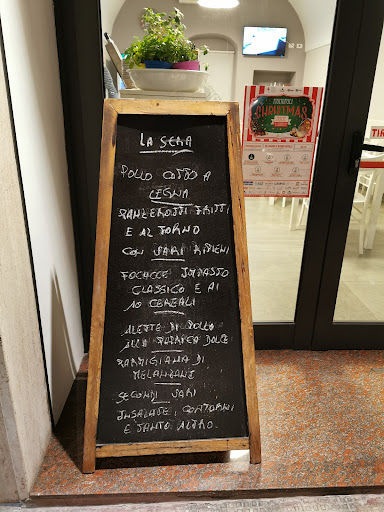 LA SERA
POLLO COTTO A
LEGNA
PANZEROTTI FRITTI
E AL FORNO
CON VARI RIPIENI
FOCACCE IMPASTO
CLASSICO E AI
10 CEREALI
ALETTE DI POLLO
ALLA PAPRICA DOLCE
PARMIGIANA DI
MELANZANE
SECONDI VARI
INSALATE, CONTORNI
E TANTO ALTRO.
CHRISTMAS
TIR